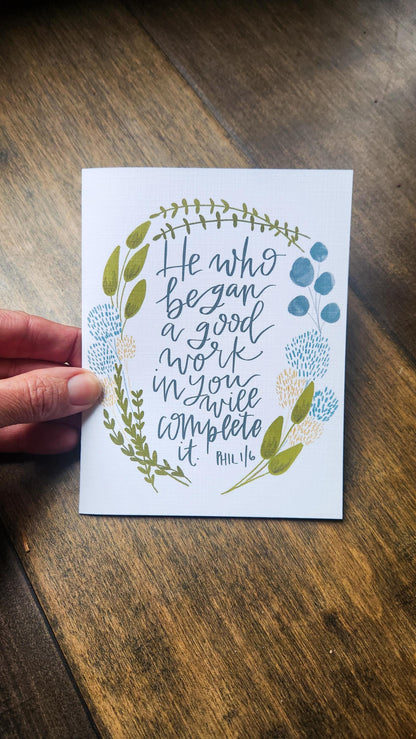 He who
began
a good
work
in you
will
complete
it. PHIL 1/6